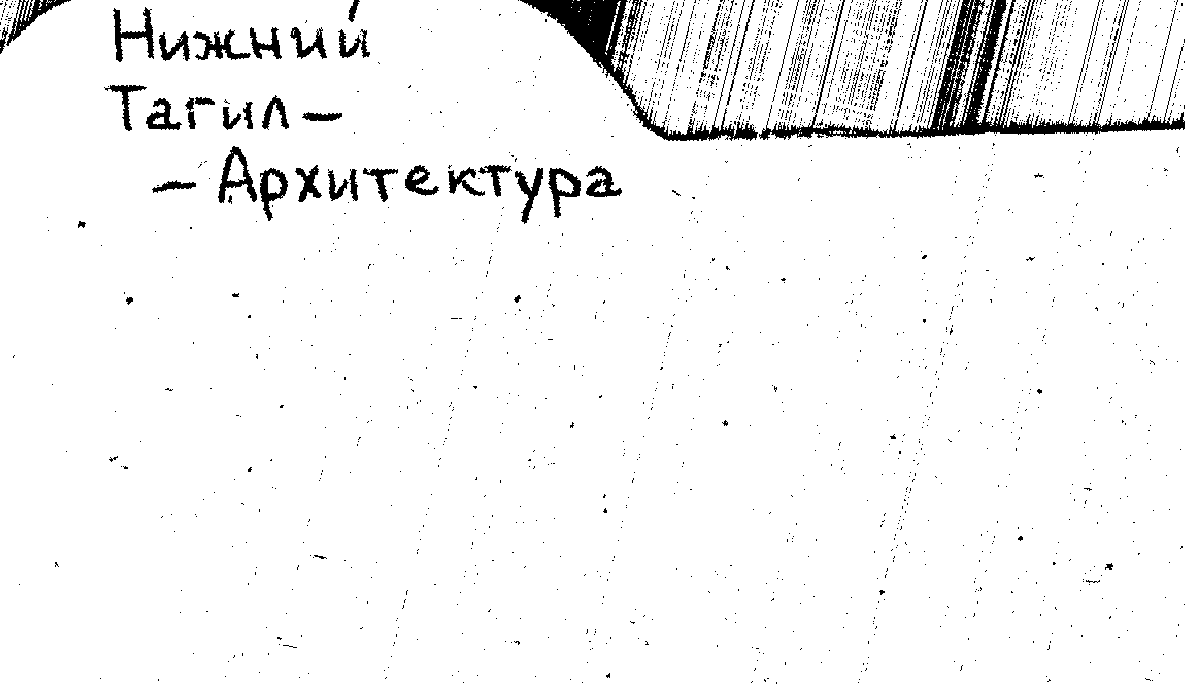 Нижний
Тагил –
– Архитектура